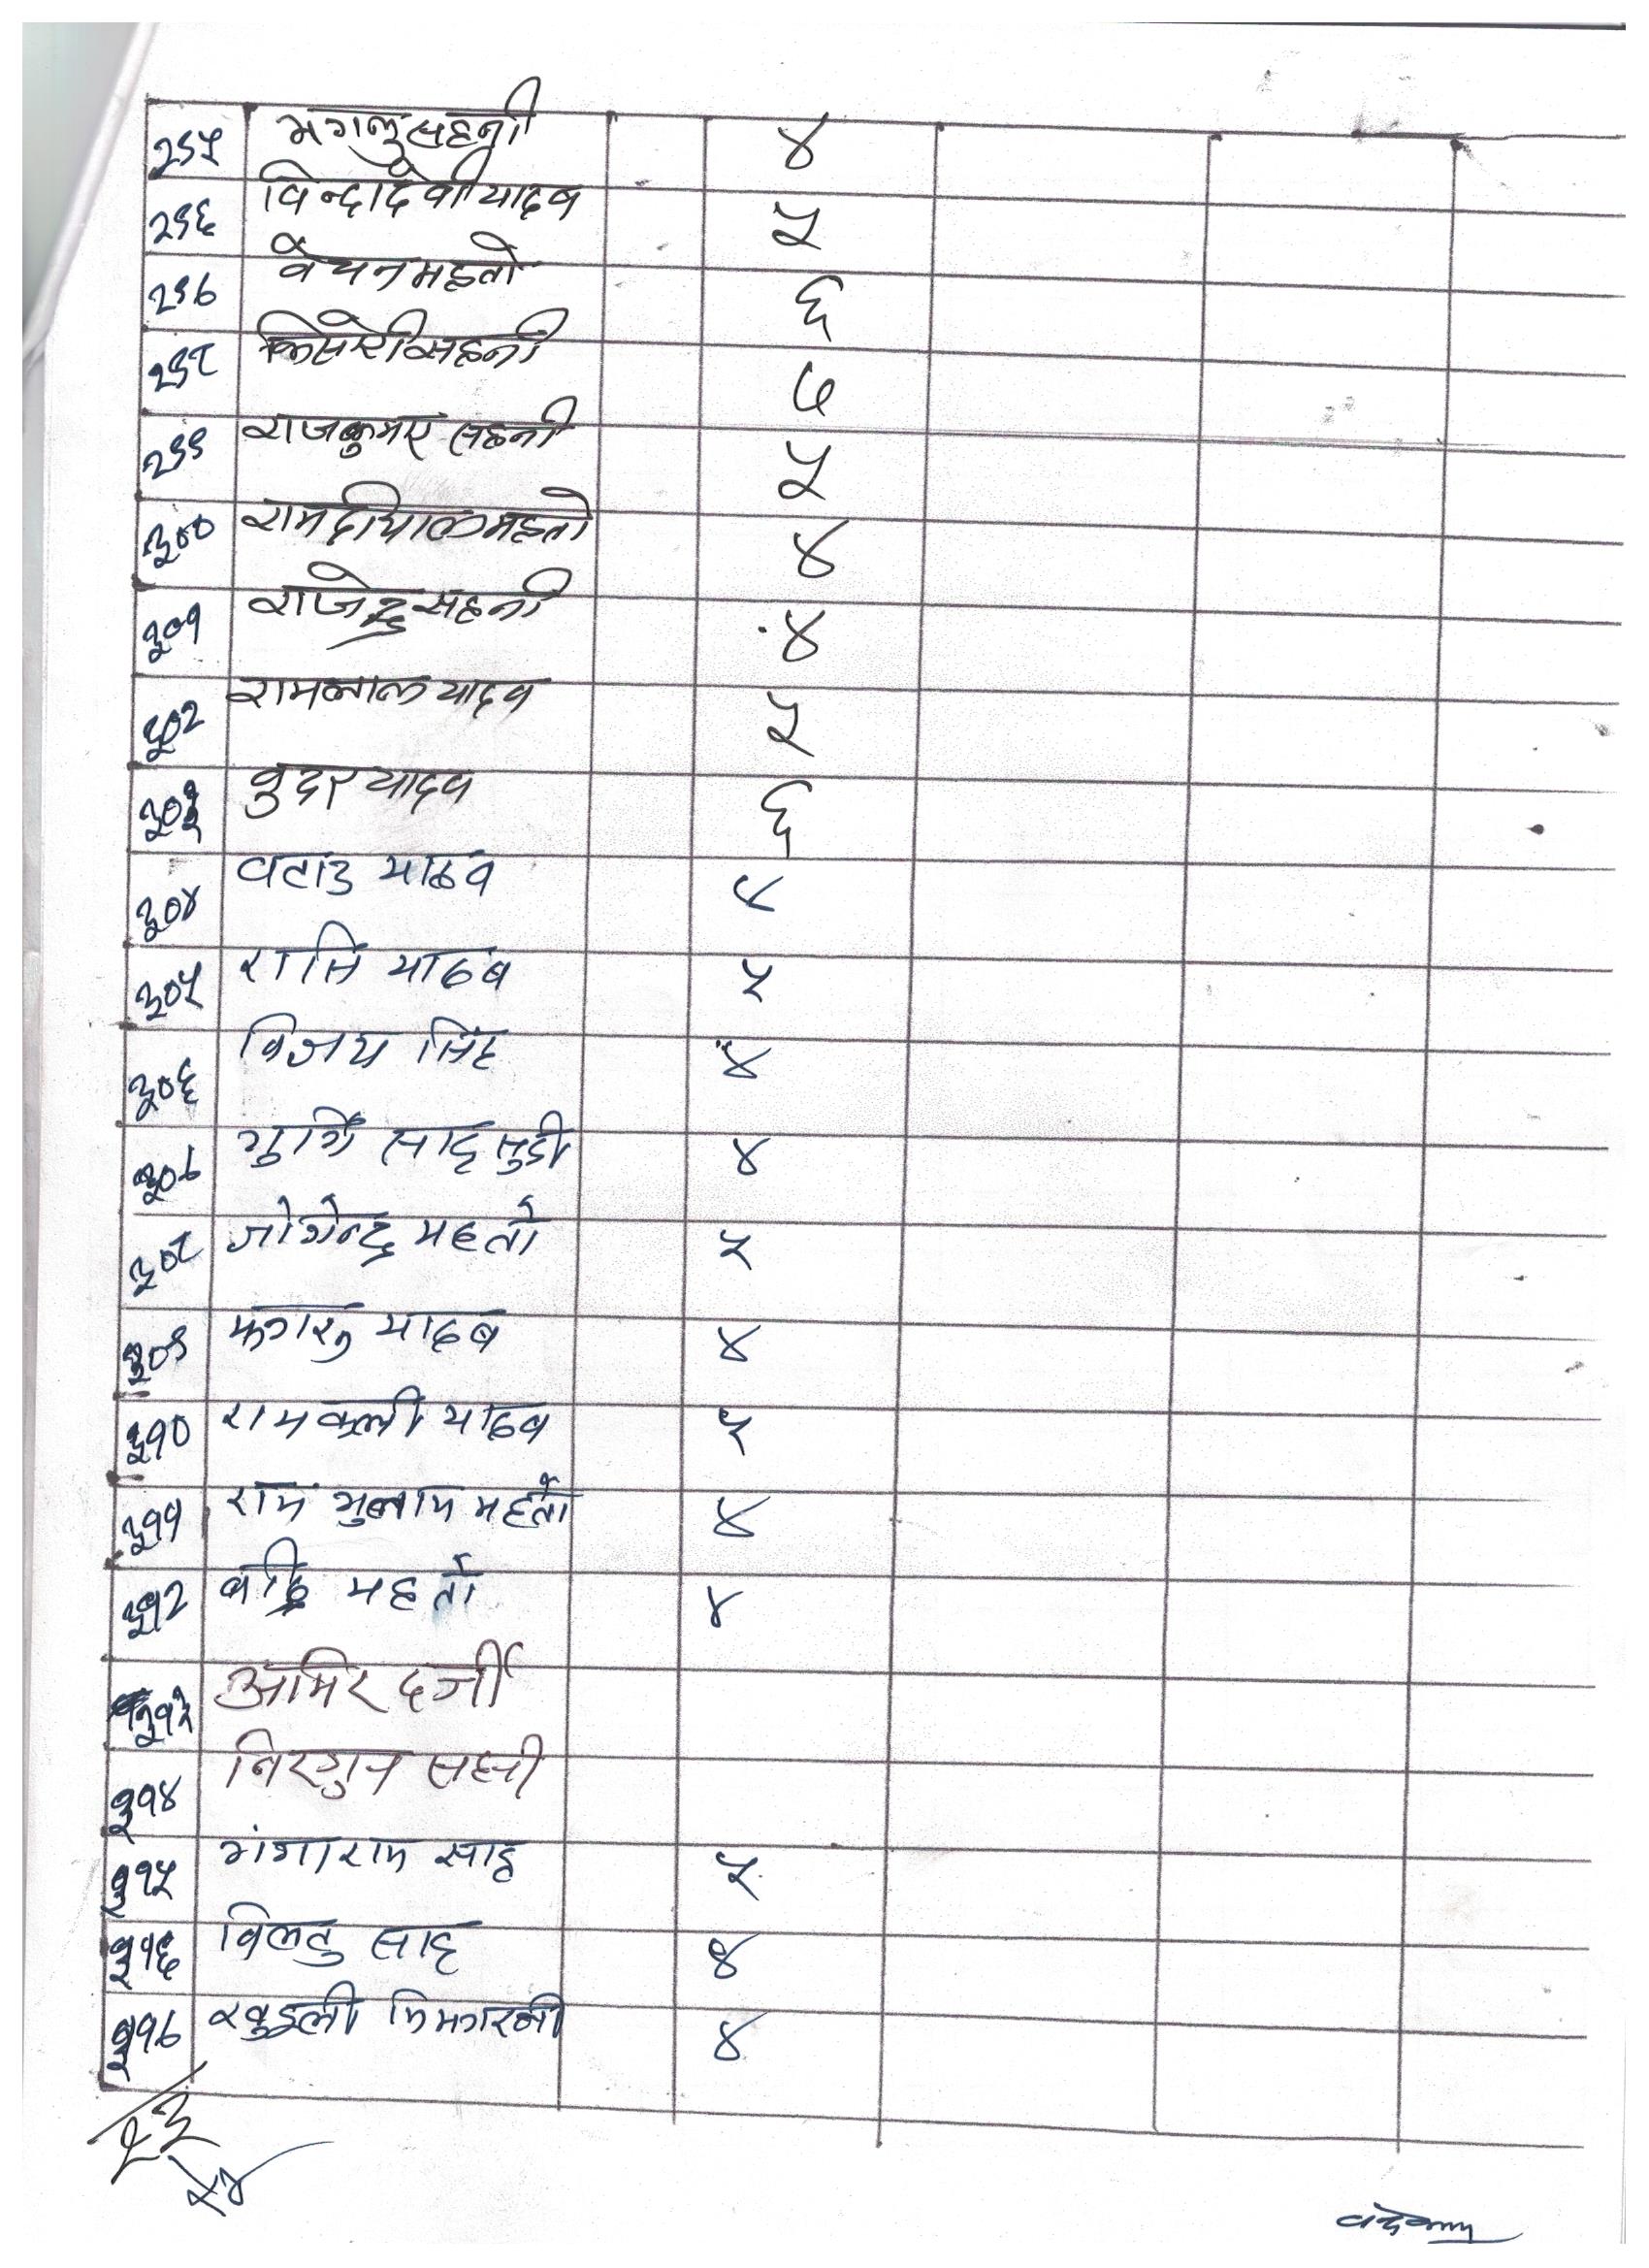 २९५ मगलु सहनी ४
२९६ विन्दादेवी यादव ५
२९७ वेचन महतो ६
२९८ किसोरी सहनी ७
२९९ राजकुमार सहनी ५
३०० रामदीयाल महतो ४
३०१ राजेन्द्र सहनी ४
३०२ रामलाल यादव ५
३०३ वुदर यादव ६
३०४ वटाउ यादव ४
३०५ राजि यादव ५
३०६ विजय सिंह ४
३०७ साह सुडी ४
३०८ जोगेन्द्र महतो ५
३०९ झगरु यादव ४
३१० रामवली यादव ५
३११ राम गुलाम महतो ४
३१२ महतो ४
३१३ आमिर दर्जी
३१४ निरगुन सहनी
३१५ गंगाराम साह ५
३१६ विलटु साह ४
३१७ ४
२३